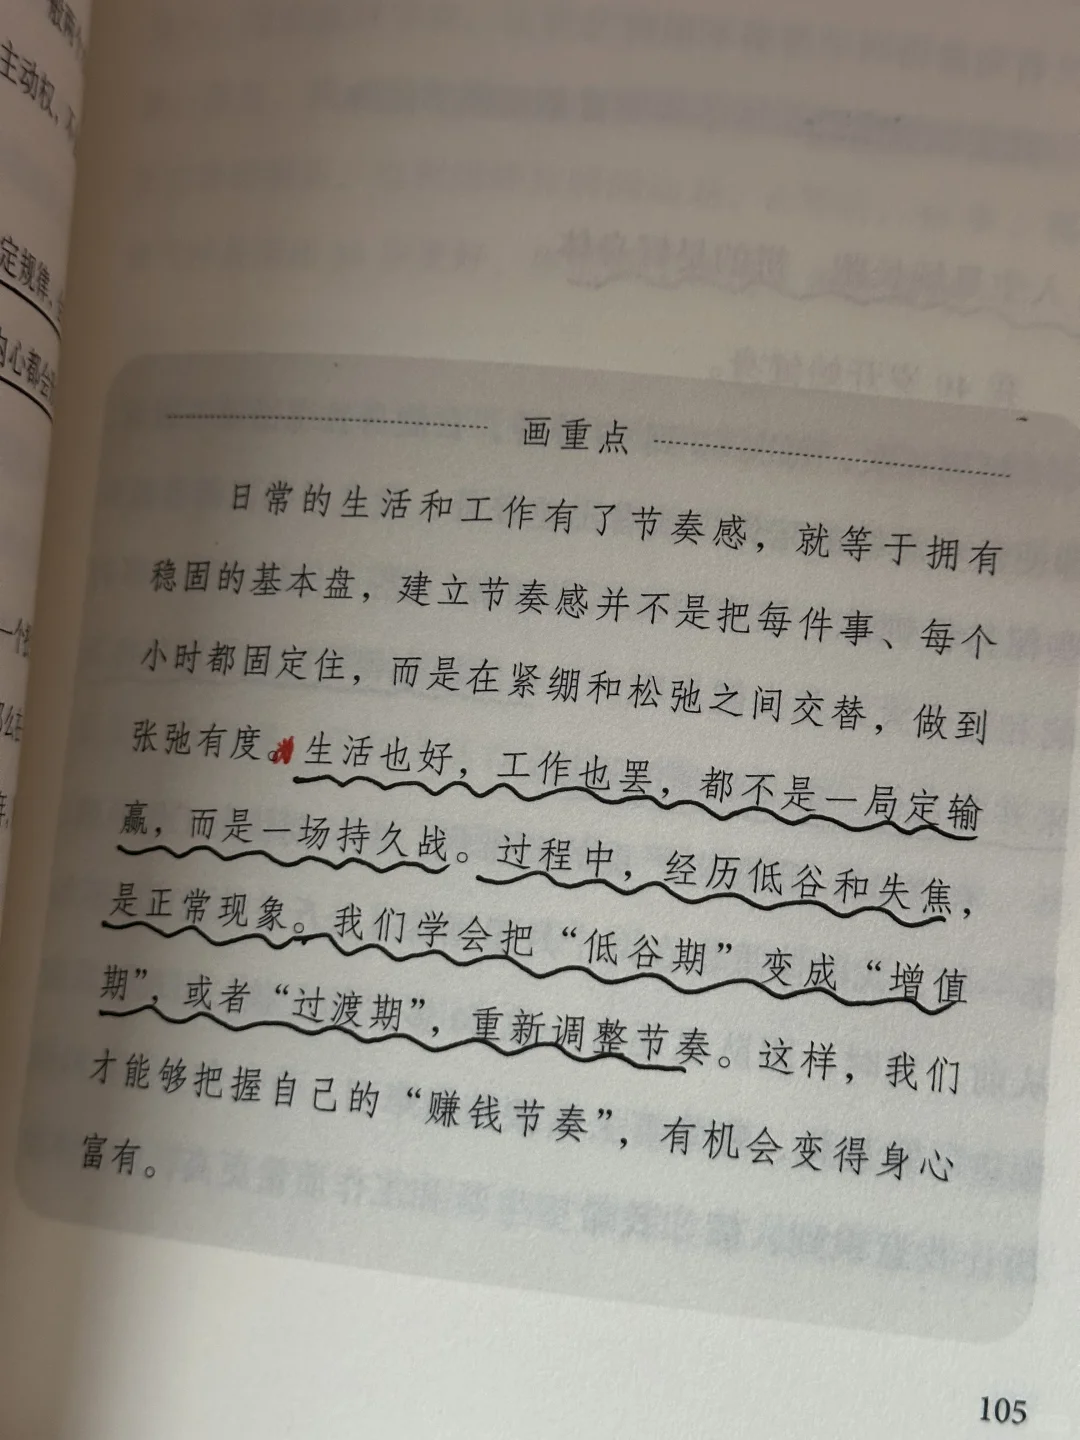 主动权，
定规律、
内心都会
画重点
日常的生活和工作有了节奏感，就等于拥有
稳固的基本盘，建立节奏感并不是把每件事、每个
小时都固定住，而是在紧绷和松弛之间交替，做到
张弛有度。生活也好，工作也罢，都不是一局定输
赢，而是一场持久战。过程中，经历低谷和失焦，
是正常现象。我们学会把“低谷期”变成“增值
期”，或者“过渡期”，重新调整节奏。这样，我们
才能够把握自己的“赚钱节奏”，有机会变得身心
富有。
105